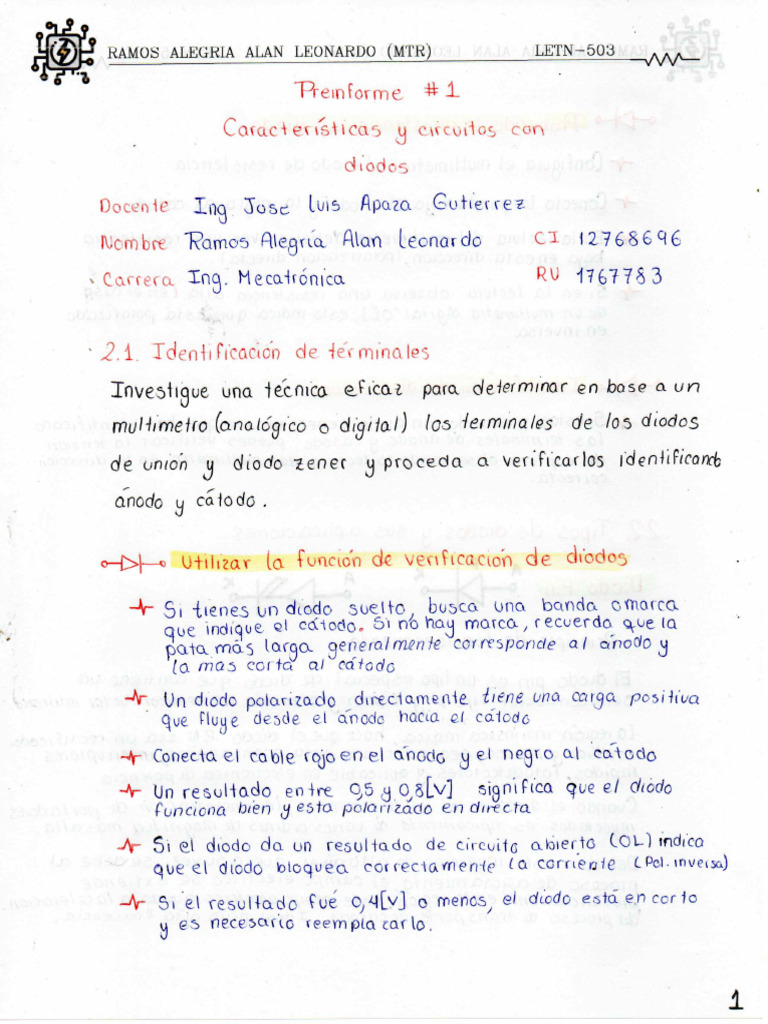 RAMOS ALEGRIA ALAN LEONARDO (MTR) LETN-503
Preinforme #1
Características y circuitos con
diodos
Docente Ing. Jose Luis Apaza Gutierrez
Nombre Ramos Alegría Alan Leonardo CI 12768696
Carrera Ing. Mecatrónica RU 1767783
2.1. Identificación de términales
Investigue una técnica eficaz para determinar en base a un
multimetro (analógico o digital) los terminales de los diodos
de unión y diodo zener y proceda a verificarlos identificando
ánodo y cátodo.
Utilizar la función de verificación de diodos
Si tienes un diodo suelto, busca una banda o marca
que indique el cátodo. Si no hay marca, recuerda que la
pata más larga generalmente corresponde al ánodo y
la mas corta al cátodo
Un diodo polarizado directamente tiene una carga positiva
que fluye desde el ánodo hacia el cátodo
Conecta el cable rojo en el ánodo y el negro al cátodo
Un resultado entre 0,5 y 0,8[V] significa que el diodo
funciona bien y esta polarizado en directa
Si el diodo da un resultado de circuito abierto (OL) indica
que el diodo bloquea correctamente la corriente (Pol. inversa)
Si el resultado fue 0,4[V] o menos, el diodo está en corto
y es necesario reemplazarlo.
1